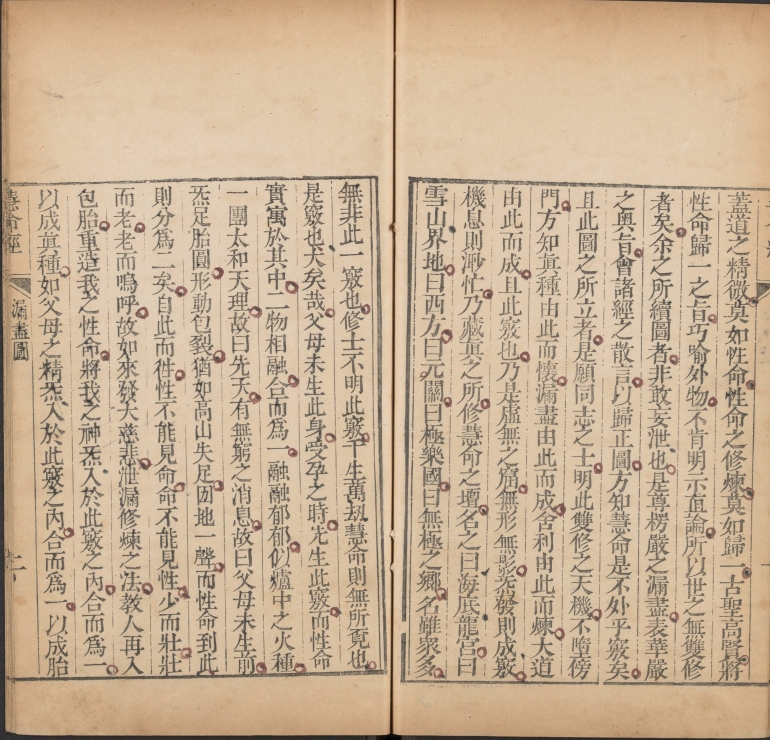 蓋道之精微莫如性命性命之修煉莫如歸一古聖高賢將
性命歸一之旨巧喻外物不肯明示直論所以世之無雙修
者矣余之所續圖者非敢妄泄也是尊楞嚴之漏盡表華嚴
之奥旨會諸經之散言以歸正圖方知慧命是不外乎竅矣
且此圖之所立者是願同志之士明此雙修之天機不墮傍
門方知眞種由此而懷漏盡由此而成舍利由此而煉大道
由此而成且此竅也乃是虛無之窟無形無影炁發則成竅
機息則渺茫乃藏眞之所修慧命之壇名之曰海底龍宮曰
雪山界地曰西方曰元關曰極樂國曰無極之鄉名雖衆多
無非此一竅也修士不明此竅千生萬劫慧命則無所覓也
是竅也大矣哉父母未生此身受孕之時先生此竅而性命
實寓於其中二物相融合而爲一融融郁郁似爐中之火種
一團太和天理故曰先天有無窮之消息故曰父母未生前
炁足胎圓形動包裂猶如高山失足囡地一聲而性命到此
則分爲二矣自此而往性不能見命命不能見性少而壯壯
而老老而嗚呼故如來發大慈悲泄漏修煉之法教人再入
包胎重造我之性命將我之神炁入於此竅之內合而爲一
以成眞種如父母之精炁入於此竅之內合而爲一以成胎
慧命經
漏盡圖